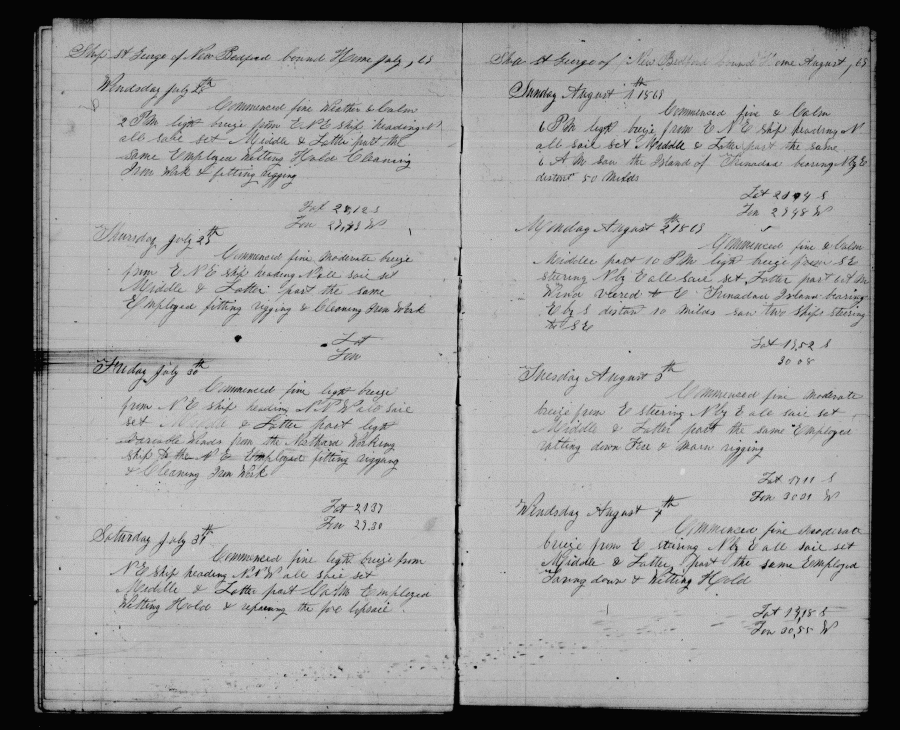 Ship St George of New Bedford bound Home July, 69
Wendsday July 28th
Commenced fine Weather & Calm
2 PM light breeze from E N E ship heading N
all saie set Middle & Latter part the
same Employed Wetting Hold Cleaning
Iron Work & fitting rigging
Lat
Lon W
Thursday July 29th
Commenced fine moderate breeze
from E N E ship heading N all saie set
Middle & Latter part the same
Employed fitting rigging & Cleaning Iron Work
Lat
Lon
Friday July 30th
Commenced fine light breeze
from N E ship heading N N W all saie
set Middle & Latter part light
Variable winds from the Northard Working
ship to the N E Employed fitting rigging
& Cleaning Iron Work
Lat 21 37
Lon 29.30
Saturday July 31th
Commenced fine light breeze from
N E ship heading N N W all saie set
Middle & Latter part Calm Employed
Wetting Hold & repairing the fore topsaie
Ship St George of New Bedford bound Home August, 69
Sunday August 1th 1869
Commenced fine & Calm
6 PM light breeze from E N E ship heading N
all saie set Middle & Latter part the same
6 A M saw the Island of Trinadad bearing N by E
distant 50 Milds
Lat S
Lon 29.48 W
Monday August 2th 1869
Commenced fine & Calm
Middle part 10 PM light breeze from S E
steering N by E all saie set Latter part
Wind veered to E Trinadad Island baring
E by S distant 10 Milds saw two ships steering
S E
Lat 19,52 S
30.08
Tuesday August 3th
Commenced fine moderate
breeze from E steering N by E all saie set
Middle & Latter part the same Employed
ratling down Fore & Main rigging
Lat 17 11 S
Lon W
Wendsday August 4th
Commenced fine Moderate
breeze from E steering N by E all saie set
Middle & Latter part the same Employed
Taring down & Wetting Hold
Lat S
Lon 30,55 W